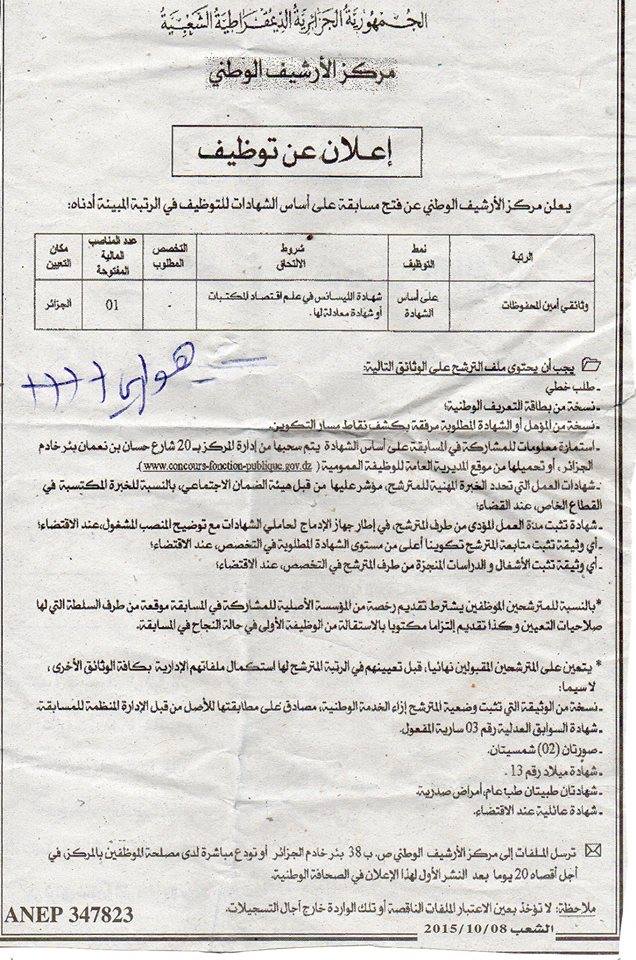 الجمهورية الجزائرية الديمقراطية الشعبية
مركز الأرشيف الوطني
إعلان عن توظيف
يعلن مركز الأرشيف الوطني عن فتح مسابقة على أساس الشهادات للتوظيف في الرتبة المبينة أدناه:
الرتبة | نمط التوظيف | شروط الالتحاق | التخصص المطلوب | عدد المناصب المالية المفتوحة | مكان التعيين
وثائقي أمين المحفوظات | على أساس الشهادة | شهادة الليسانس في علم اقتصاد المكتبات أو شهادة معادلة لها. | - | 01 | الجزائر
يجب أن يحتوي ملف الترشح على الوثائق التالية:
ـ طلب خطي
ـ نسخة من بطاقة التعريف الوطنية؛
ـ نسخة من المؤهل أو الشهادة المطلوبة مرفقة بكشف نقاط مسار التكوين.
ـ استمارة معلومات للمشاركة في المسابقة على أساس الشهادة يتم سحبها من إدارة المركز بـ20 شارع حسان بن نعمان بئر خادم
الجزائر، أو تحميلها من موقع المديرية العامة للوظيفة العمومية (www.concours-fonction-publique.gov.dz).
ـ شهادات العمل التي تحدد الخبرة المهنية للمترشح، مؤشر عليها من قبل هيئة الضمان الاجتماعي، بالنسبة للخبرة المكتسبة في
القطاع الخاص، عند القضاء؛
ـ شهادة تثبت مدة العمل المؤدى من طرف المترشح، في إطار جهاز الإدماج لحاملي الشهادات مع توضيح المنصب المشغول، عند الاقتضاء؛
ـ أي وثيقة تثبت متابعة المترشح تكوينا أعلى من مستوى الشهادة المطلوبة في التخصص، عند الاقتضاء؛
ـ أي وثيقة تثبت الأشغال والدراسات المنجزة من طرف المترشح في التخصص، عند الاقتضاء؛
*بالنسبة للمترشحين الموظفين يشترط تقديم رخصة من المؤسسة الأصلية للمشاركة في المسابقة موقعة من طرف السلطة التي لها
صلاحيات التعيين وكذا تقديم إلتزاما مكتوبا بالاستقالة من الوظيفة الأولى في حالة النجاح في المسابقة.
* يتعين على المترشحين المقبولين نهائيا، قبل تعيينهم في الرتبة المترشح لها استكمال ملفاتهم الإدارية بكافة الوثائق الأخرى،
لا سيما:
ـ نسخة من الوثيقة التي تثبت وضعية المترشح إزاء الخدمة الوطنية، مصادق على مطابقتها للأصل من قبل الإدارة المنظمة للمسابقة.
ـ شهادة السوابق العدلية رقم 03 سارية المفعول.
ـ صورتان (02) شمسيتان.
ـ شهادة ميلاد رقم 13.
ـ شهادتان طبيتان طب عام، أمراض صدرية.
ـ شهادة عائلية عند الاقتضاء.
ترسل الملفات إلى مركز الأرشيف الوطني ص. ب 38 بئر خادم الجزائر أو تودع مباشرة لدى مصلحة الموظفين بالمركز، في
أجل أقصاه 20 يوما بعد النشر الأول لهذا الإعلان في الصحافة الوطنية.
ملاحظة: لا تؤخذ بعين الاعتبار الملفات الناقصة أو تلك الواردة خارج آجال التسجيلات.
ANEP 347823
الشعب 2015/10/08